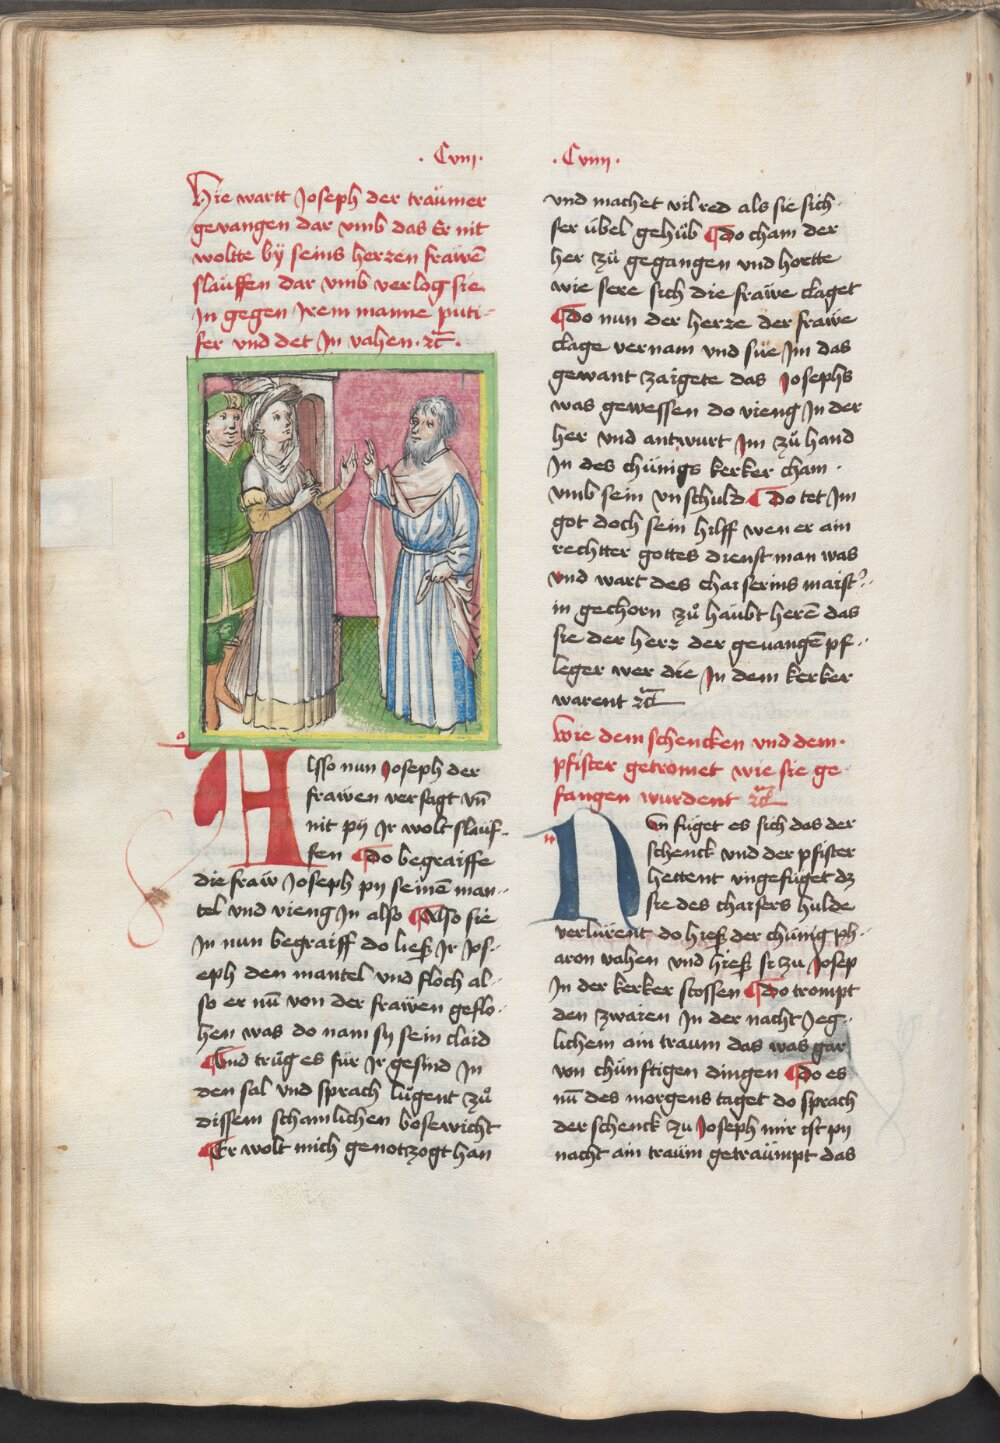 · Cviij ·
Hie wartt Joseph der traümer
gevangen dar vmb das Er nit
woltte bÿ seins herzen frawē
slauffen dar vmb verlog sie
Jn gegen Jrem manne puti-
fer vnd det Jn vahen · ꝛc̄ ·
Alsso nun Joseph der
frawen versagt vn̄
nit pÿ Jr wolt slauf-
fen Do begraiffe
die fraw Joseph py seinē man-
tel vnd vieng Jn also Also sie
Jn nun begraiff do ließ Jr Jos-
eph den mantel vnd floch al-
so er nū von der frawen geflo-
hen was do nam sy sein claid
Vnd trůg es für Jr gesind Jn
den sal vnd sprach lůgent zů
dissem schamlichen bosewicht
Er wolt mich genotzogt han
· Cviiij ·
vnd machet vil red als sie sich
ser übel gehůb Do cham der
her zů gegangen vnd hortte
wie sere sich die frawe claget
Do nun der herze der frawe
clage vernam vnd sue Jm das
gewant zaigete das Josephs
was gewessen do vieng Jn der
her vnd antwurt Jm zů hand
Jn des chünigs kerker cham ·
vmb sein vnschuld Do tet Jm
got doch sein hilff wen er ain
rechtter gottes dienst man was
vnd wart des chaiserins maist⁹
in gechorn zů haubt herē das
sie der herz der gevangē pf-
leger wer die Jn dem kerker
warent ꝛc̄
Wie dem schencken vnd dem
pfister getromet wie sie ge
fangen wurdent ꝛc̄
Nvn füget es sich das der
schenck vnd der pfister
hettent vngefüget dz
sie des chaisers hulde
verlürent do hieß der chünig ph-
araon vahen vnd hieß si zu Josep
Jn der kerker stossen Do trompt
den zwaien Jn der nacht Jeg-
lichem ain traum das was gar
von chünftigen dingen Do es
nū des morgens taget do sprach
der schenck zu Joseph mir ist py
nacht ain traüm getraümpt das